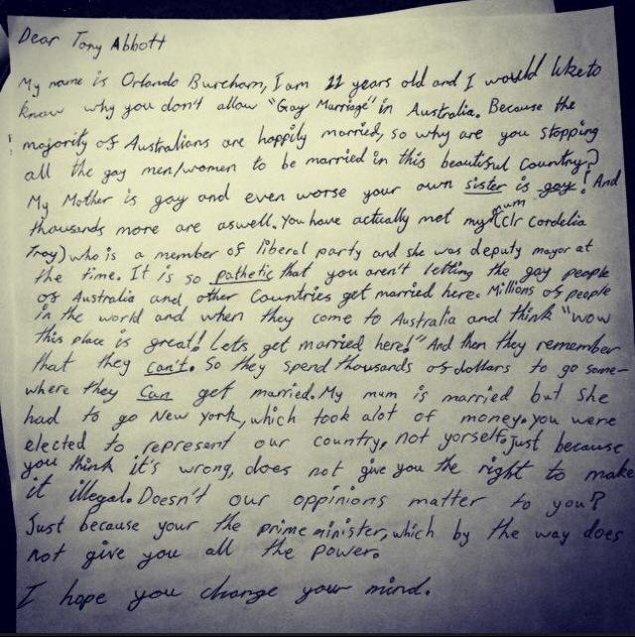 Dear Tony Abbott
My name is Orlando Burcham, I am 11 years old and I would like to
know why you don't allow "Gay Marriage" in Australia. Because the
majority of Australians are happily married, so why are you stopping
all the gay men/women to be married in this beautiful Country?
My Mother is gay and even worse your own sister is gay! And
thousands more are aswell. You have actually met my mum (Clr Cordelia
Troy) who is a member of liberal party and she was deputy mayor at
the time. It is so pathetic that you aren't letting the gay people
of Australia and other Countries get married here. Millions of people
in the world and when they come to Australia and think "wow
this place is great! Lets get married here!" And then they remember
that they can't. So they spend thousands of dollars to go some-
where they Can get married. My mum is married but she
had to go New York, which took alot of money. You were
elected to represent our country, not yorself, just because
you think it's wrong, does not give you the right to make
it illegal. Doesn't our oppinions matter to you?
Just because your the prime minister, which by the way does
not give you all the power.
I hope you change your mind.